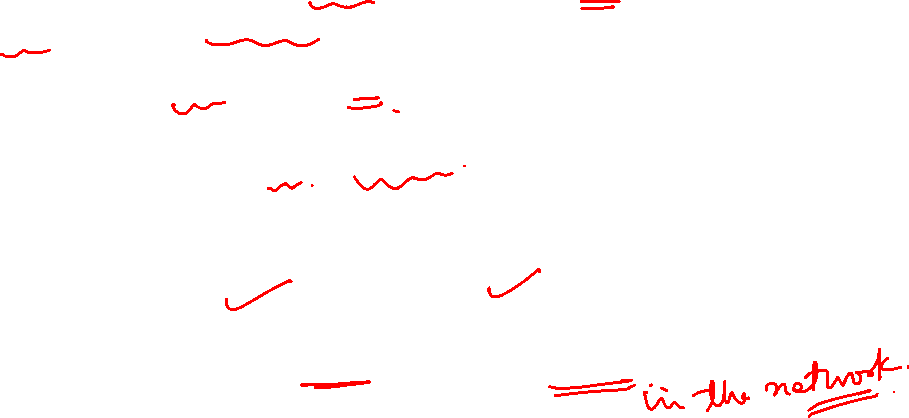 in the network.